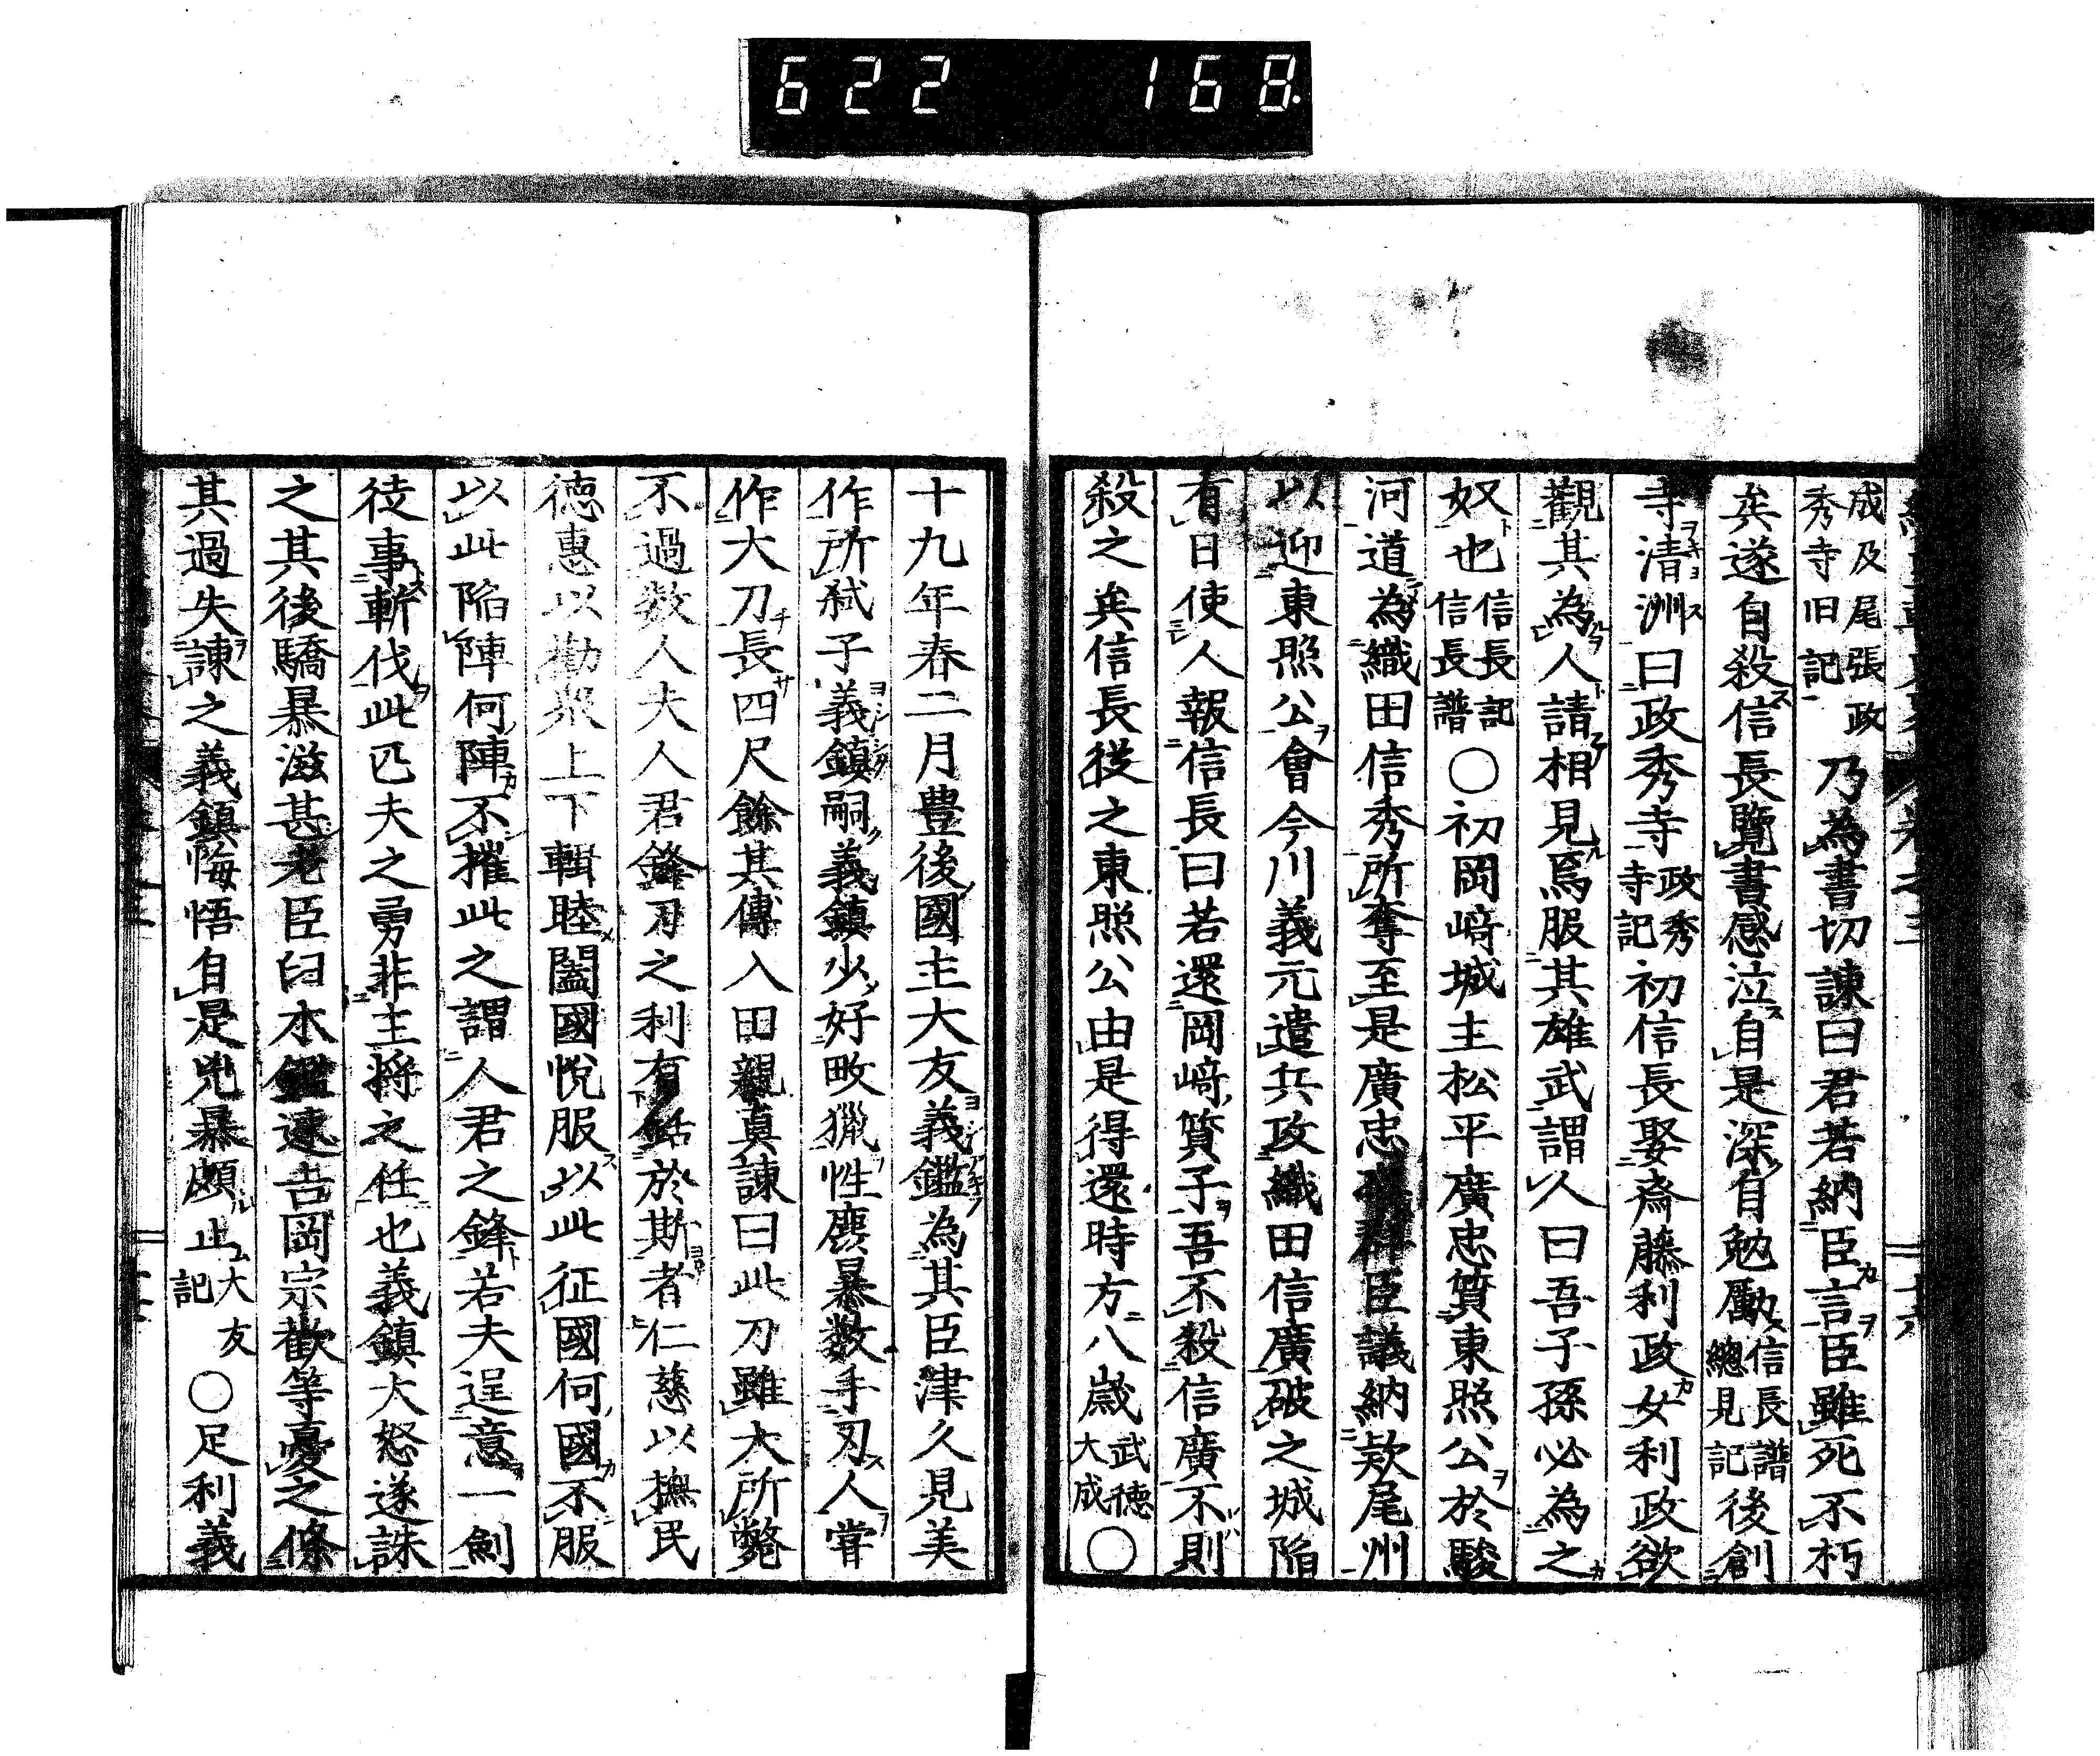 622 168
成及尾張政秀寺旧記乃為書切諫曰君若納臣言臣雖死不朽
矣遂自殺信長覽書感泣自是深自勉勵信長譜總見記後創
寺清洲曰政秀寺政秀寺記初信長娶斎藤利政女利政欲
觀其為人請相見焉服其雄武謂人曰吾子孫必為之
奴也信長記信長譜〇初岡﨑城主松平廣忠質東照公於駿
河道為織田信秀所奪至是廣忠群臣議納欵尾州
以迎東照公會今川義元遣兵攻織田信廣破之城陷
有日使人報信長曰若還岡﨑質子吾不殺信廣不則
殺之矣信長從之東照公由是得還時方八歲武德大成〇
十九年春二月豊後國主大友義鑑為其臣津久見美
作所弑子義鎮嗣義鎮少好畋獵性麁暴数手刃人嘗
作大刀長四尺餘其傅入田親真諫曰此刀雖大所斃
不過数人夫人君鋒刃之利有銛於斯者仁慈以撫民
德惠以勸衆上下輯睦闔國悅服以此征國何國不服
以此陷陣何陣不摧此之謂人君之鋒若夫逞意一劍
徒事斬伐此匹夫之勇非主將之任也義鎮大怒遂誅
之其後驕暴滋甚老臣臼木鑑速吉岡宗歡等憂之條
其過失諫之義鎮悔悟自是兇暴頗止大友記〇足利義